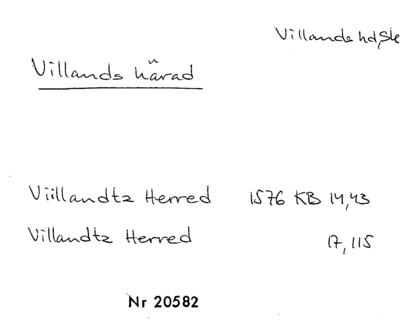 Villands hd, Sk
Villands härad
Viillandtz Herred 1576 KB 14,43
Villandtz Herred 17,115
Nr 20582